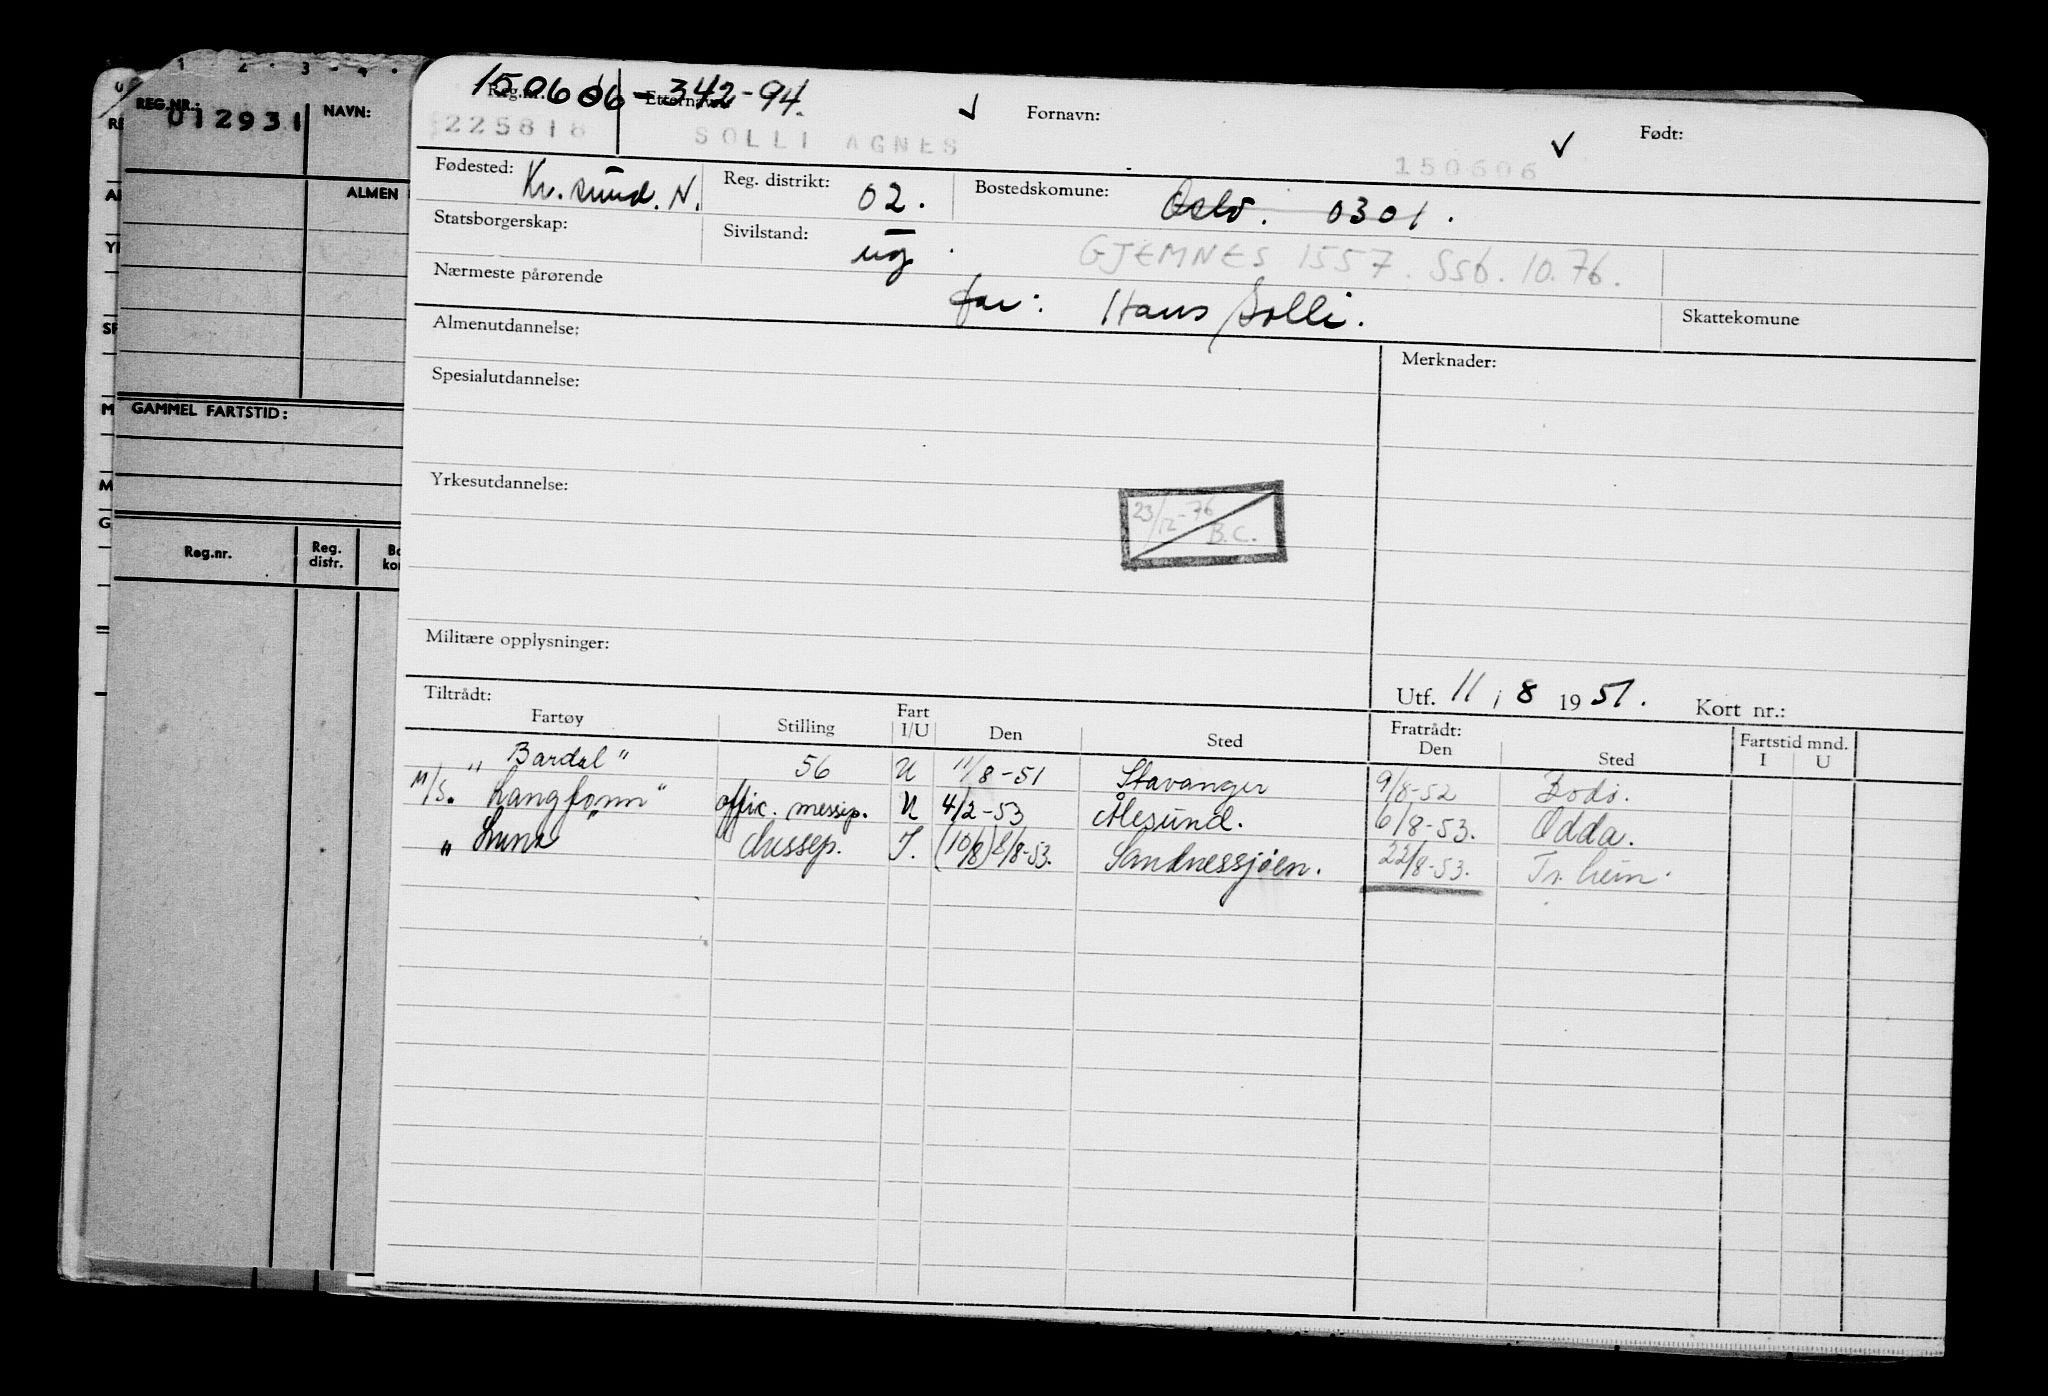 REG.NR.: 012931 NAVN:
ALMEN
GAMMEL FARTSTID:
Reg.nr. Reg. distr.
150606-342-94.
Reg.nr. Etternavn Fornavn: Født:
225818 SOLLI AGNES 150606
Fødested: Kr.sund. N. Reg. distrikt: 02. Bostedskomune: Oslo. 0301.
Statsborgerskap: Sivilstand: ug. GJEMNES 1557. SSB. 10.76.
Nærmeste pårørende far: Hans Solli. Skattekomune
Almenutdannelse: Merknader:
Spesialutdannelse:
Yrkesutdannelse:
23/12-76 B.C.
Militære opplysninger:
Utf. 11/8 1951. Kort nr.:
Tiltrådt: Fratrådt: Fartstid mnd.
Fartøy Stilling Fart I/U Den Sted Den Sted I U
"Bardal" 56 U 11/8-51 Stavanger 9/8-52 Bodø.
M/S. "Langfonn" offic. messep. U 4/2-53 Ålesund. 6/8-53. Odda.
" Luna messep. I. (10/8) 8/8-53. Sandnessjøen. 22/8-53. Tr.heim.